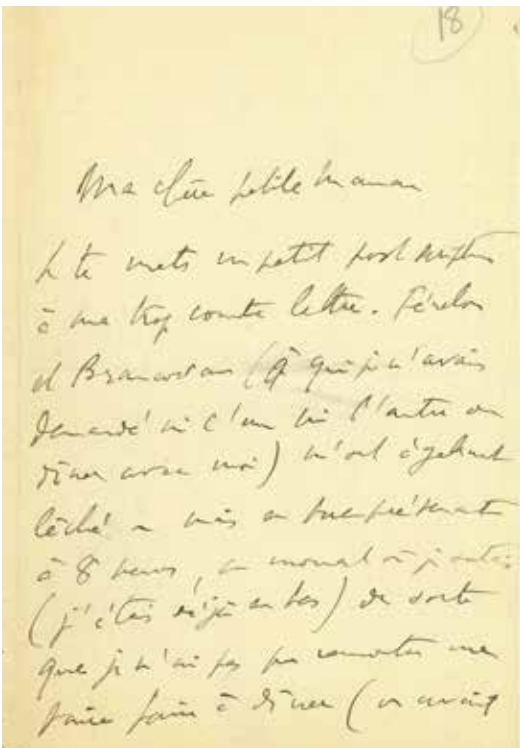 18
Ma chère petite Maman
Je te mets un petit post scriptum
à ma trop courte lettre. Fénelon
et Brancovan (à qui je n'avais
demandé ni l'un ni l'autre de
dîner avec moi) m'ont également
lâché mais en me prévenant
à 8 heures, au moment où je sortais
(j'étais déjà en bas) de sorte
que je n'ai pas pu remonter me
faire faire à dîner (on avait